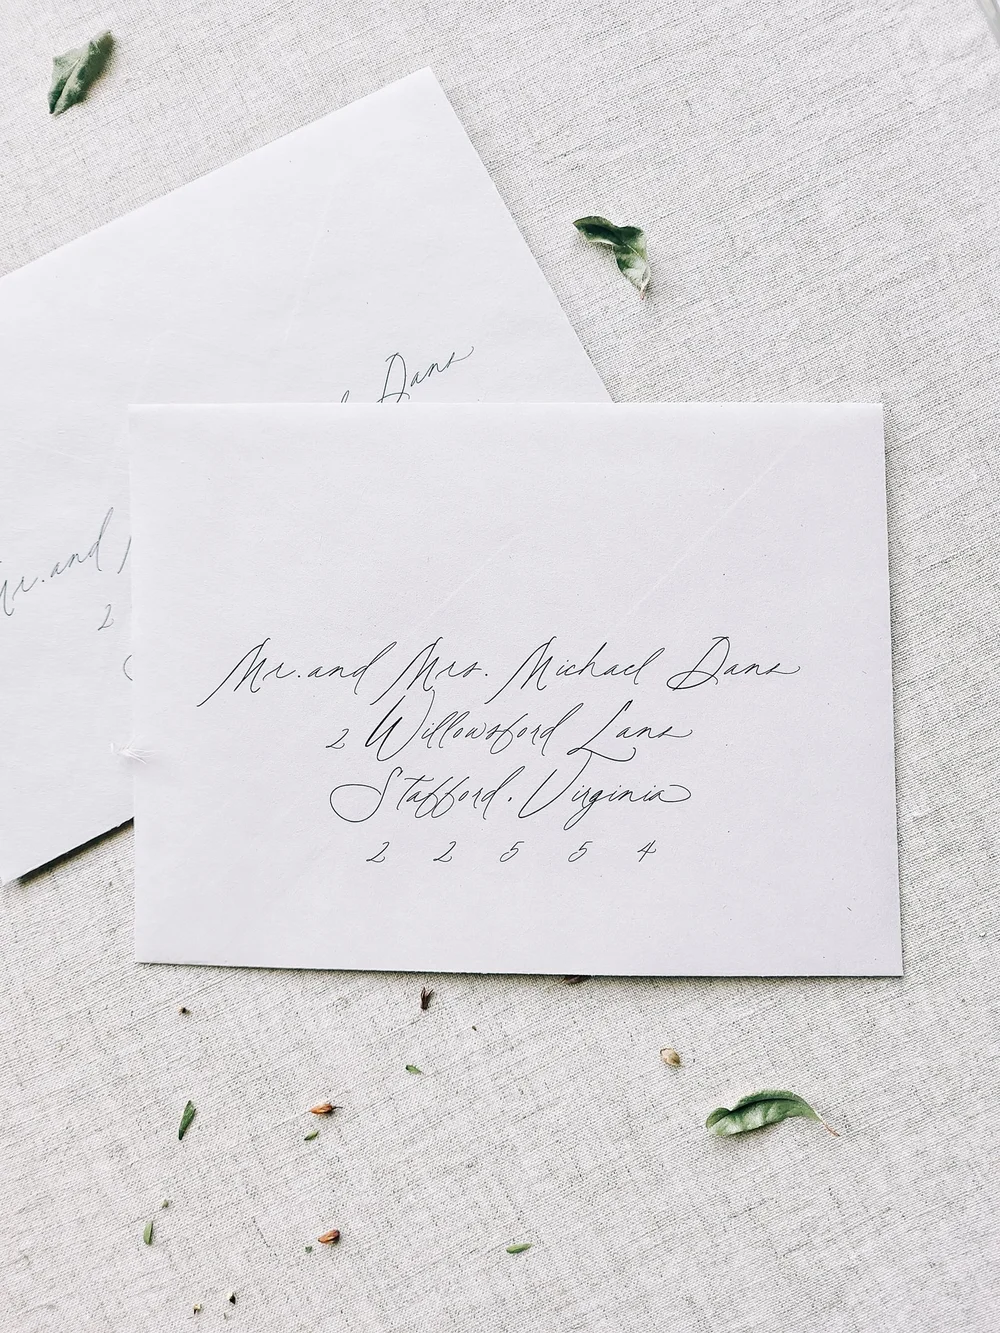 Dane
Mr. and
2
Mr. and Mrs. Michael Dane
2 Willowsford Lane
Stafford, Virginia
2 2 5 5 4